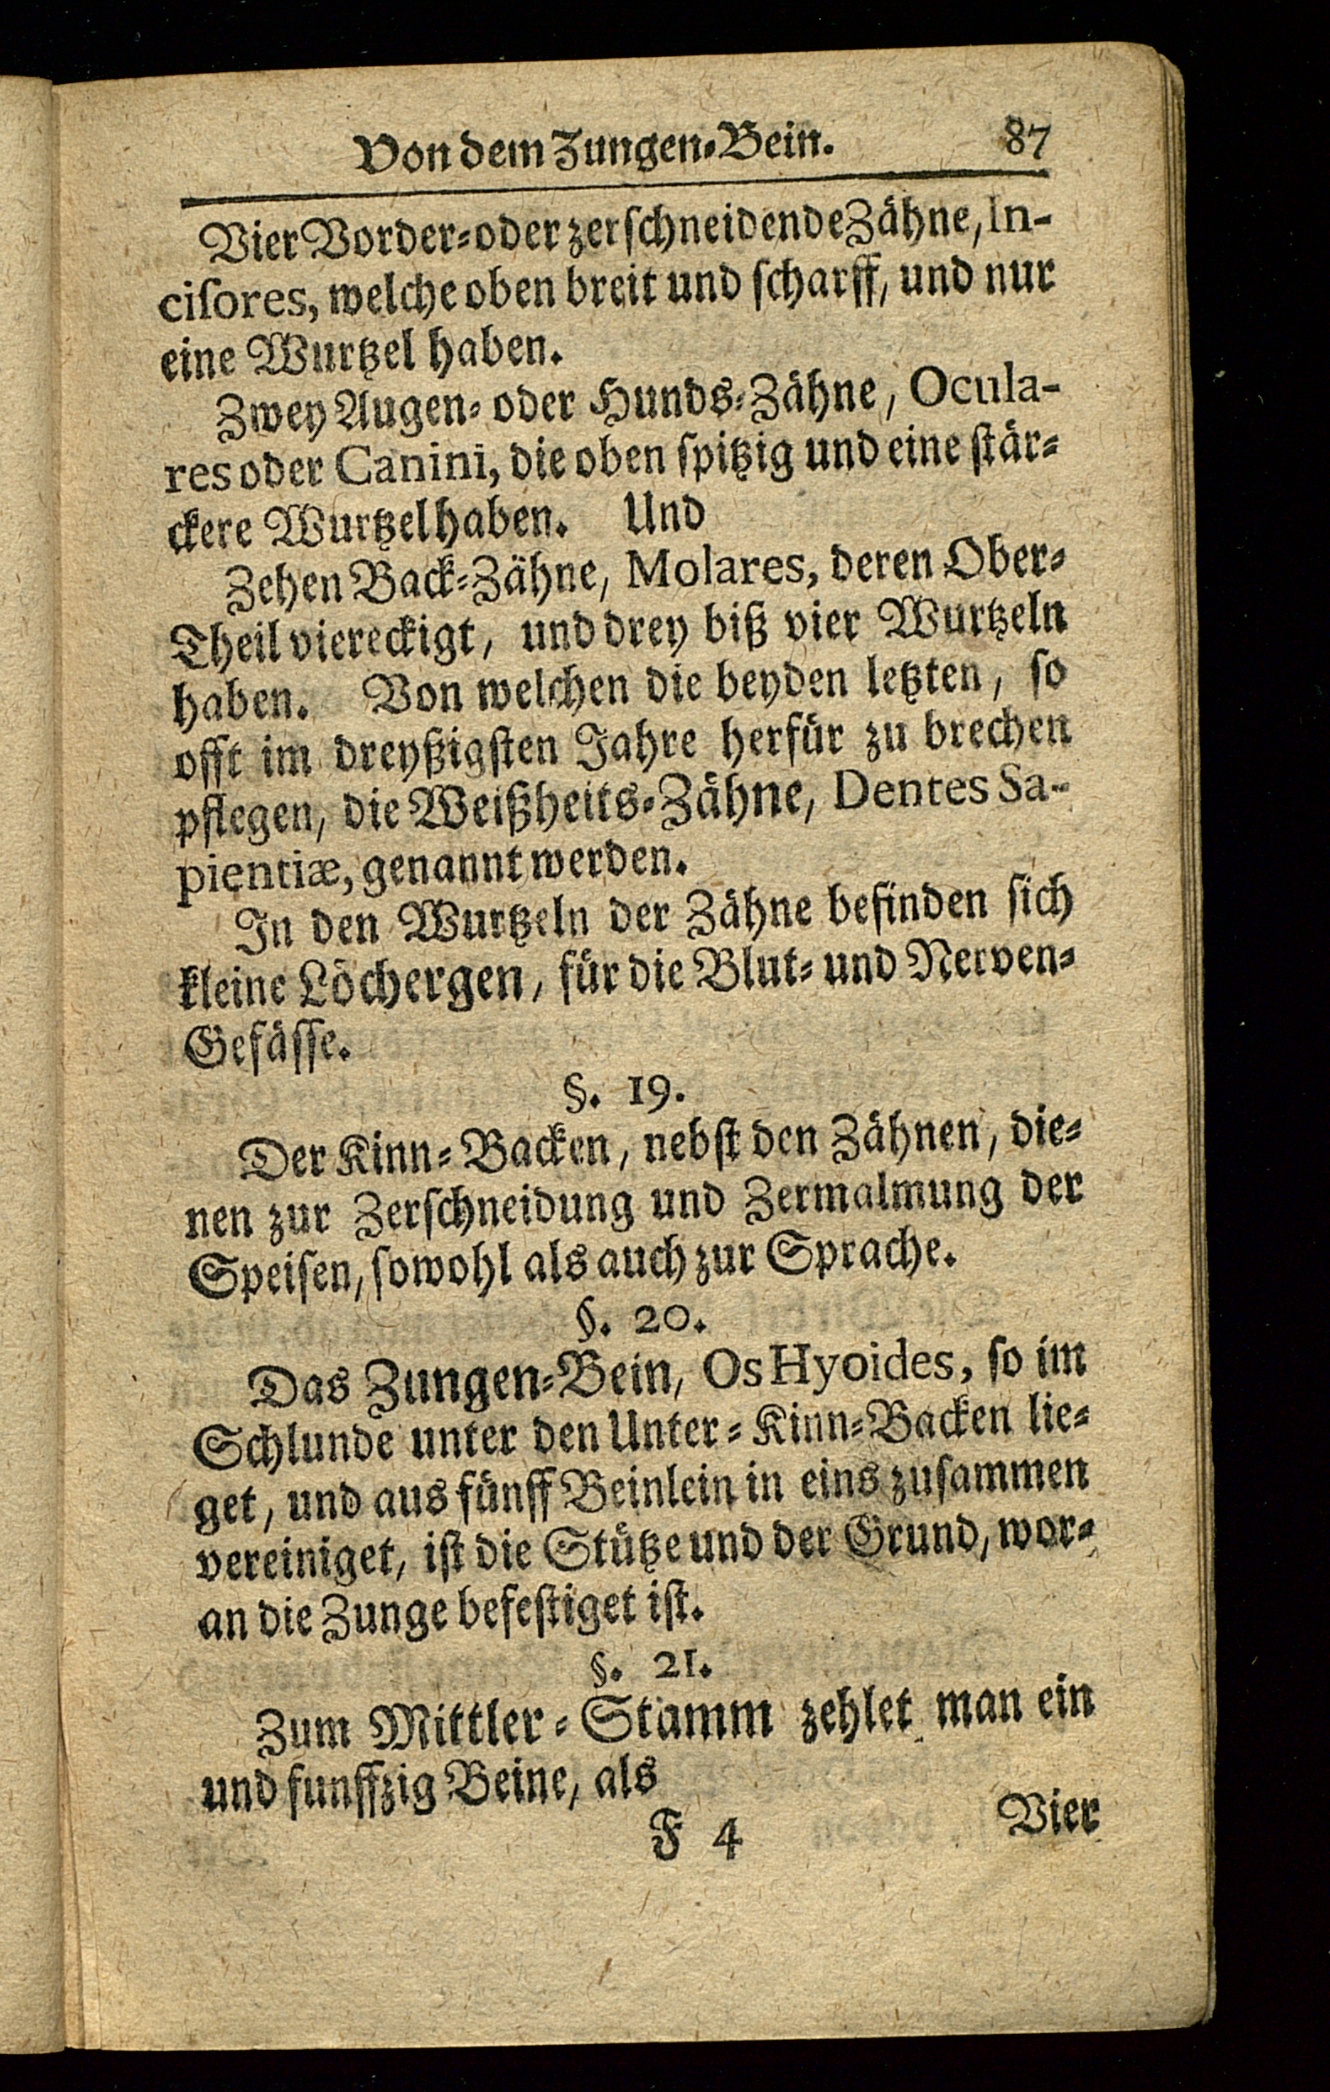 Von dem Zungen-Bein. 87
Vier Vorder- oder zerschneidende Zähne, In-
cisores, welche oben breit und scharff, und nur
eine Wurtzel haben.
Zwey Augen- oder Hunds-Zähne, Ocula-
res oder Canini, die oben spitzig und eine stär-
ckere Wurtzel haben. Und
Zehen Back-Zähne, Molares, deren Ober-
Theil viereckigt, und drey biß vier Wurtzeln
haben. Von welchen die beyden letzten, so
offt im dreyßigsten Jahre herfür zu brechen
pflegen, die Weißheits-Zähne, Dentes Sa-
pientiæ, genannt werden.
In den Wurtzeln der Zähne befinden sich
kleine Löchergen, für die Blut- und Nerven-
Gefässe.
§. 19.
Der Kinn-Backen, nebst den Zähnen, die-
nen zur Zerschneidung und Zermalmung der
Speisen, sowohl als auch zur Sprache.
§. 20.
Das Zungen-Bein, Os Hyoides, so im
Schlunde unter den Unter-Kinn-Backen lie-
get, und aus fünff Beinlein in eins zusammen
vereiniget, ist die Stütze und der Grund, wor-
an die Zunge befestiget ist.
§. 21.
Zum Mittler-Stamm zehlet man ein
und funffzig Beine, als
F 4 Vier